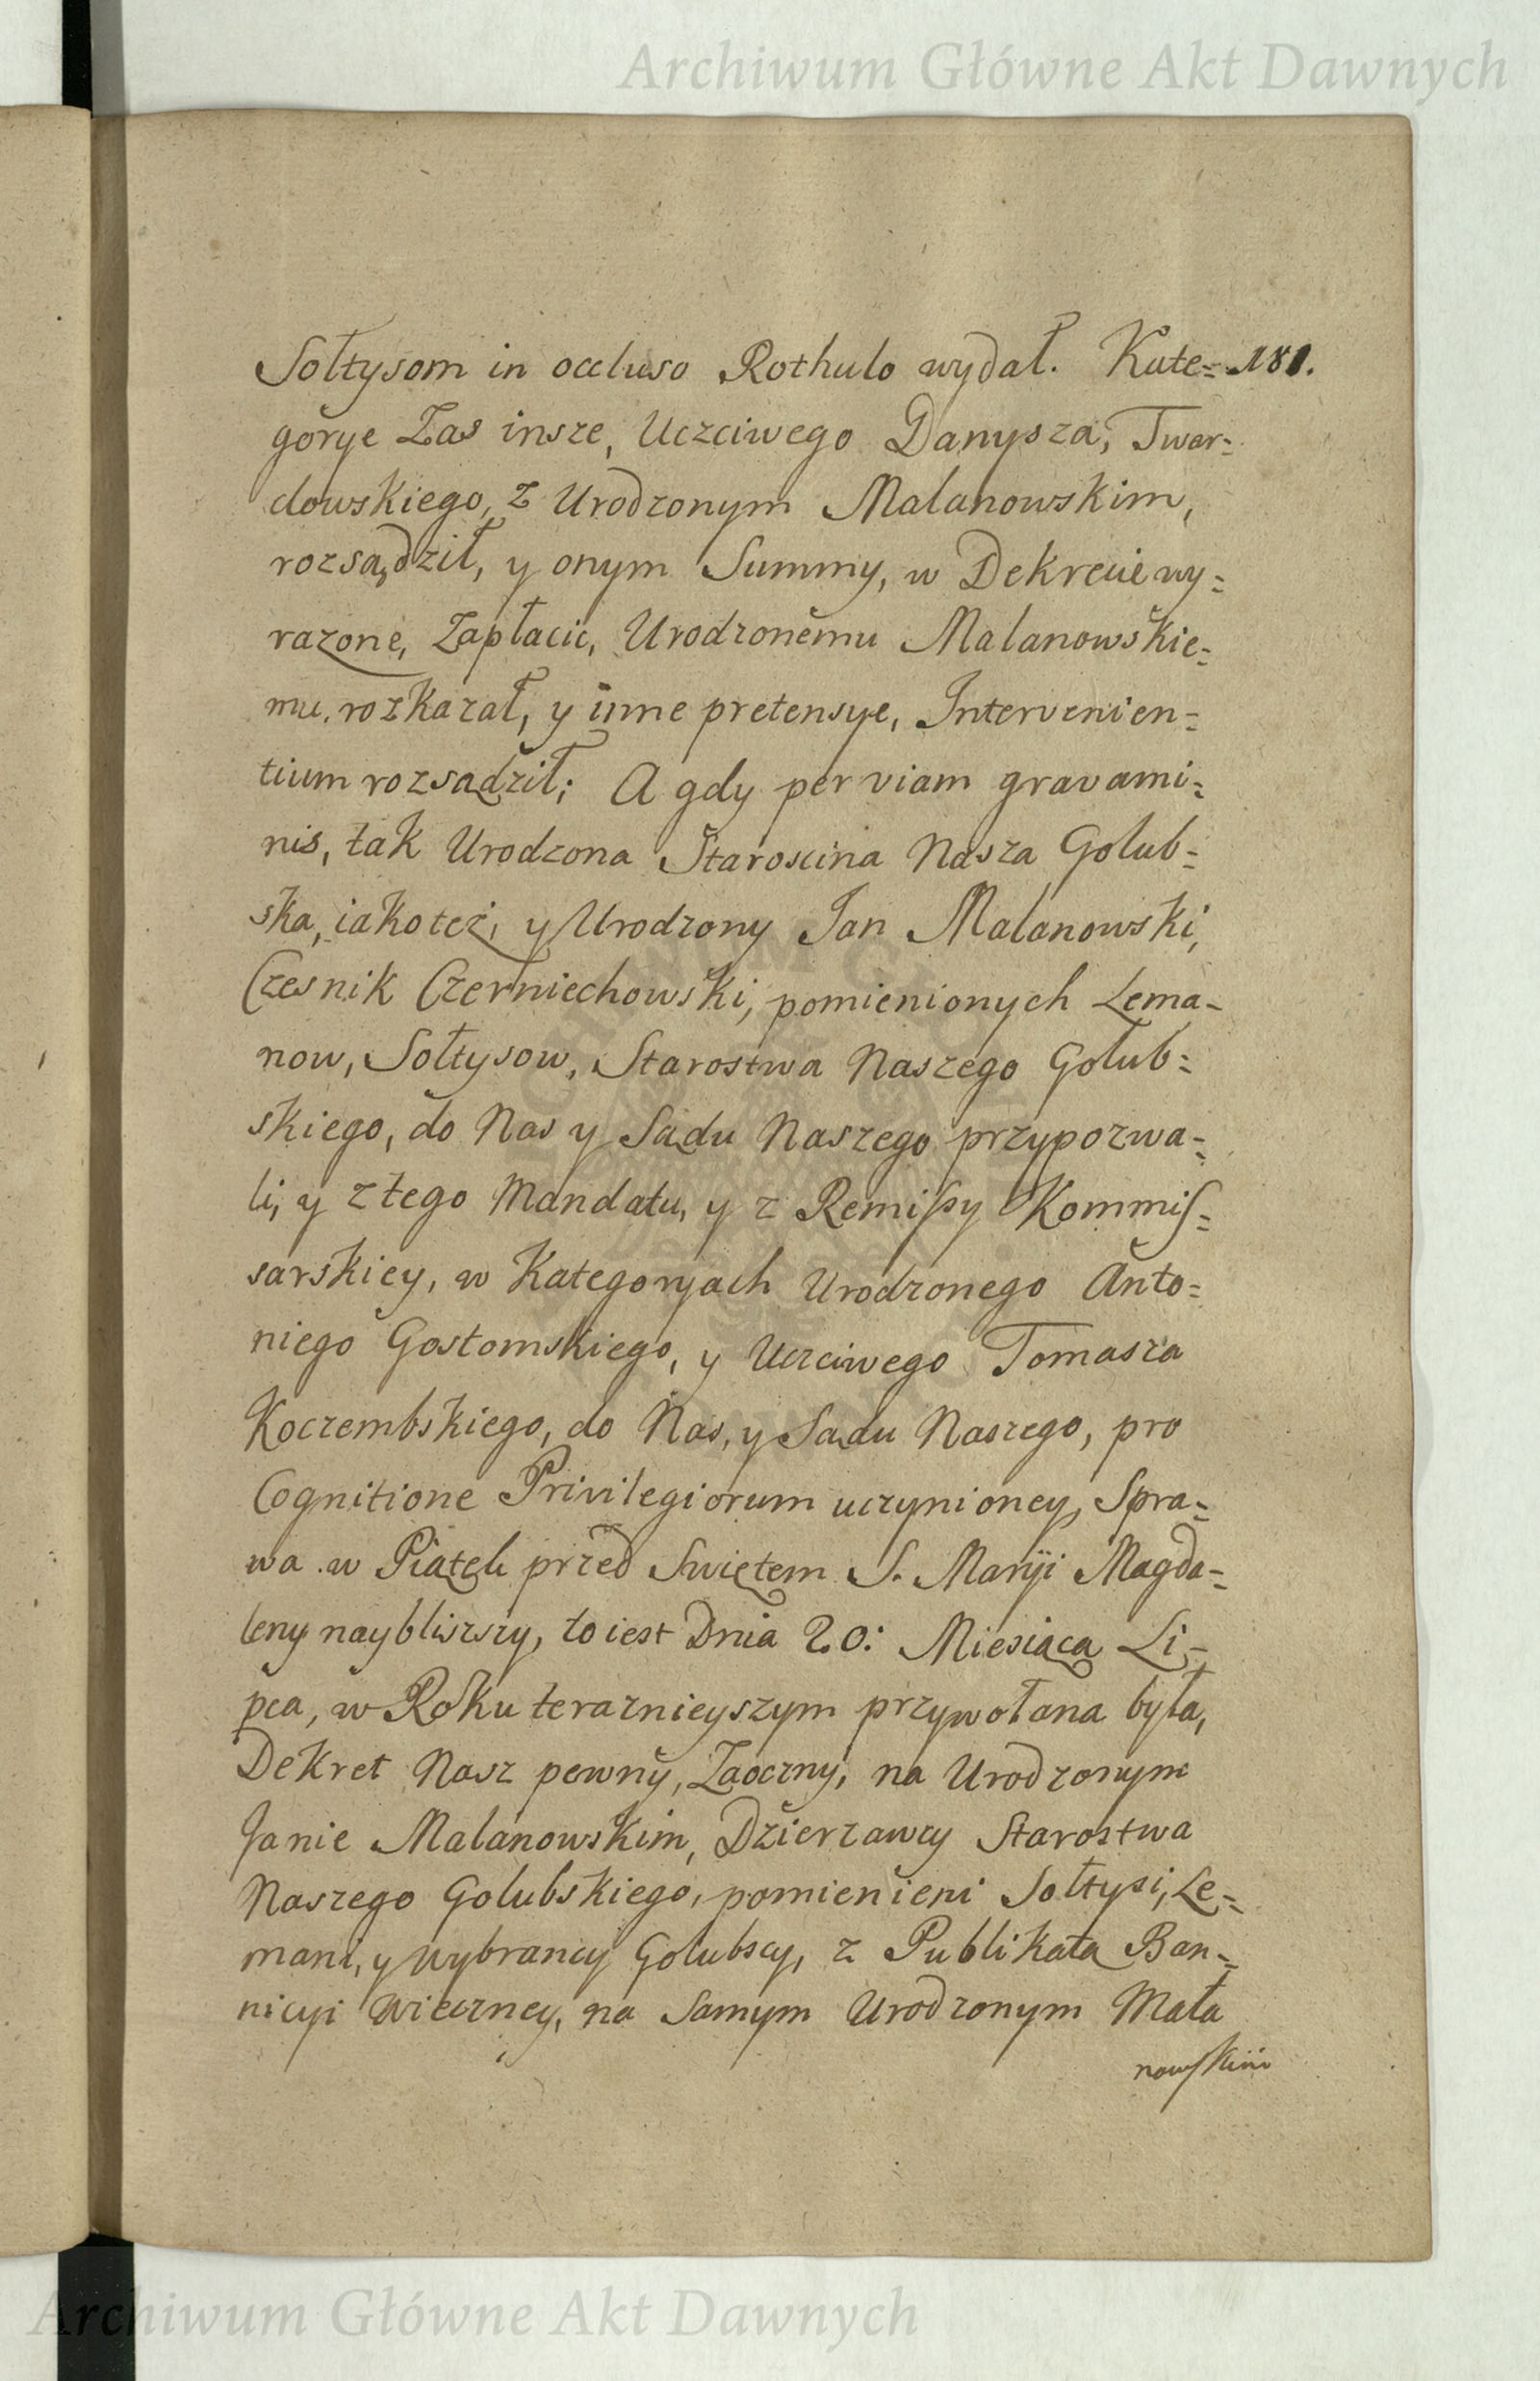 Archiwum Główne Akt Dawnych
Sołtysom in occluso Rothulo wydał. Kate= 181.
gorye Zas insze, Uczciwego Danysza, Twar=
dowskiego, z Urodzonym Malanowskim,
rozsądził, y onym Summy, w Dekrecie wy=
razone, Zapłacic, Urodzonemu Malanowskie=
mu, rozkazał, y inne pretensye, Intervenien=
tium rozsądził; A gdy per viam gravami=
nis, tak Urodzona Staroscina Nasza Golub=
ska, iako też, y Urodzony Jan Malanowski,
Czesnik Czerniechowski, pomienionych Lema=
now, Sołtysow, Starostwa Naszego Golub=
skiego, do Nas y Sądu Naszego przypozwa=
li, y z tego Mandatu, y z Remissy Kommis=
sarskiey, w Kategoryach Urodzonego Anto=
niego Gostomskiego, y Uczciwego Tomasza
Koczembskiego, do Nas, y Sądu Naszego, pro
Cognitione Privilegiorum uczynioney, Spra=
wa w Piątek przed Swiętem S. Maryi Magda=
leny naybliszszy, to iest Dnia 20: Miesiąca Li=
pca, w Roku teraznieyszym przywołana była,
Dekret Nasz pewny, Zaoczny, na Urodzonym
Janie Malanowskim, Dzierzawcy Starostwa
Naszego Golubskiego, pomienieni Sołtysi, Le=
mani, y wybrancy Golubscy, z Publikatą Ban=
nicyi wieczney, na Samym Urodzonym Mała
nowskim
Archiwum Główne Akt Dawnych